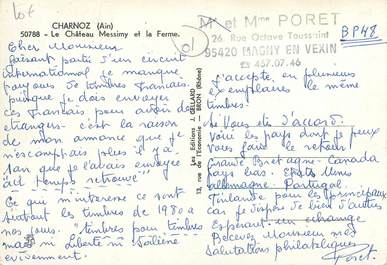 lot
CHARNOZ (Ain)
50788 - Le Château Messimy et la Ferme.
Cher Monsieur
Faisant partie d'un circuit
international je manque
toujours de timbres français.
puisque je dois envoyer
des français pour avoir des
étrangers - c'est la raison
de mon annonce que je
n'escomptais plus il y a
1 an que je l'avais envoyée
au temps retrouvé"
Ce qui m'intéresse ce sont
surtout les timbres de 1980 à
nos jours. "timbres pour timbres
mais ni Liberté ni Sabine
évidemment.
Les Editions J. GELLARD
13, rue de l'Economie - BRON (Rhône)
Mr et Mme PORET
26 Rue Octave Toussaint
95420 MAGNY EN VEXIN
467.07.46
BP48
J'accepte, en plusieurs
exemplaires le même
timbre!
Si Vous êtes d'accord
voici les pays dont je peux
vous faire le retour
Grande Bretagne - Canada
pays bas. Etats Unis
allemagne Portugal.
Finlande pour les principaux
car je dispose de bien d'autres
Espérant un échange
Recevez Monsieur mes
Salutations philatéliques
Poret.